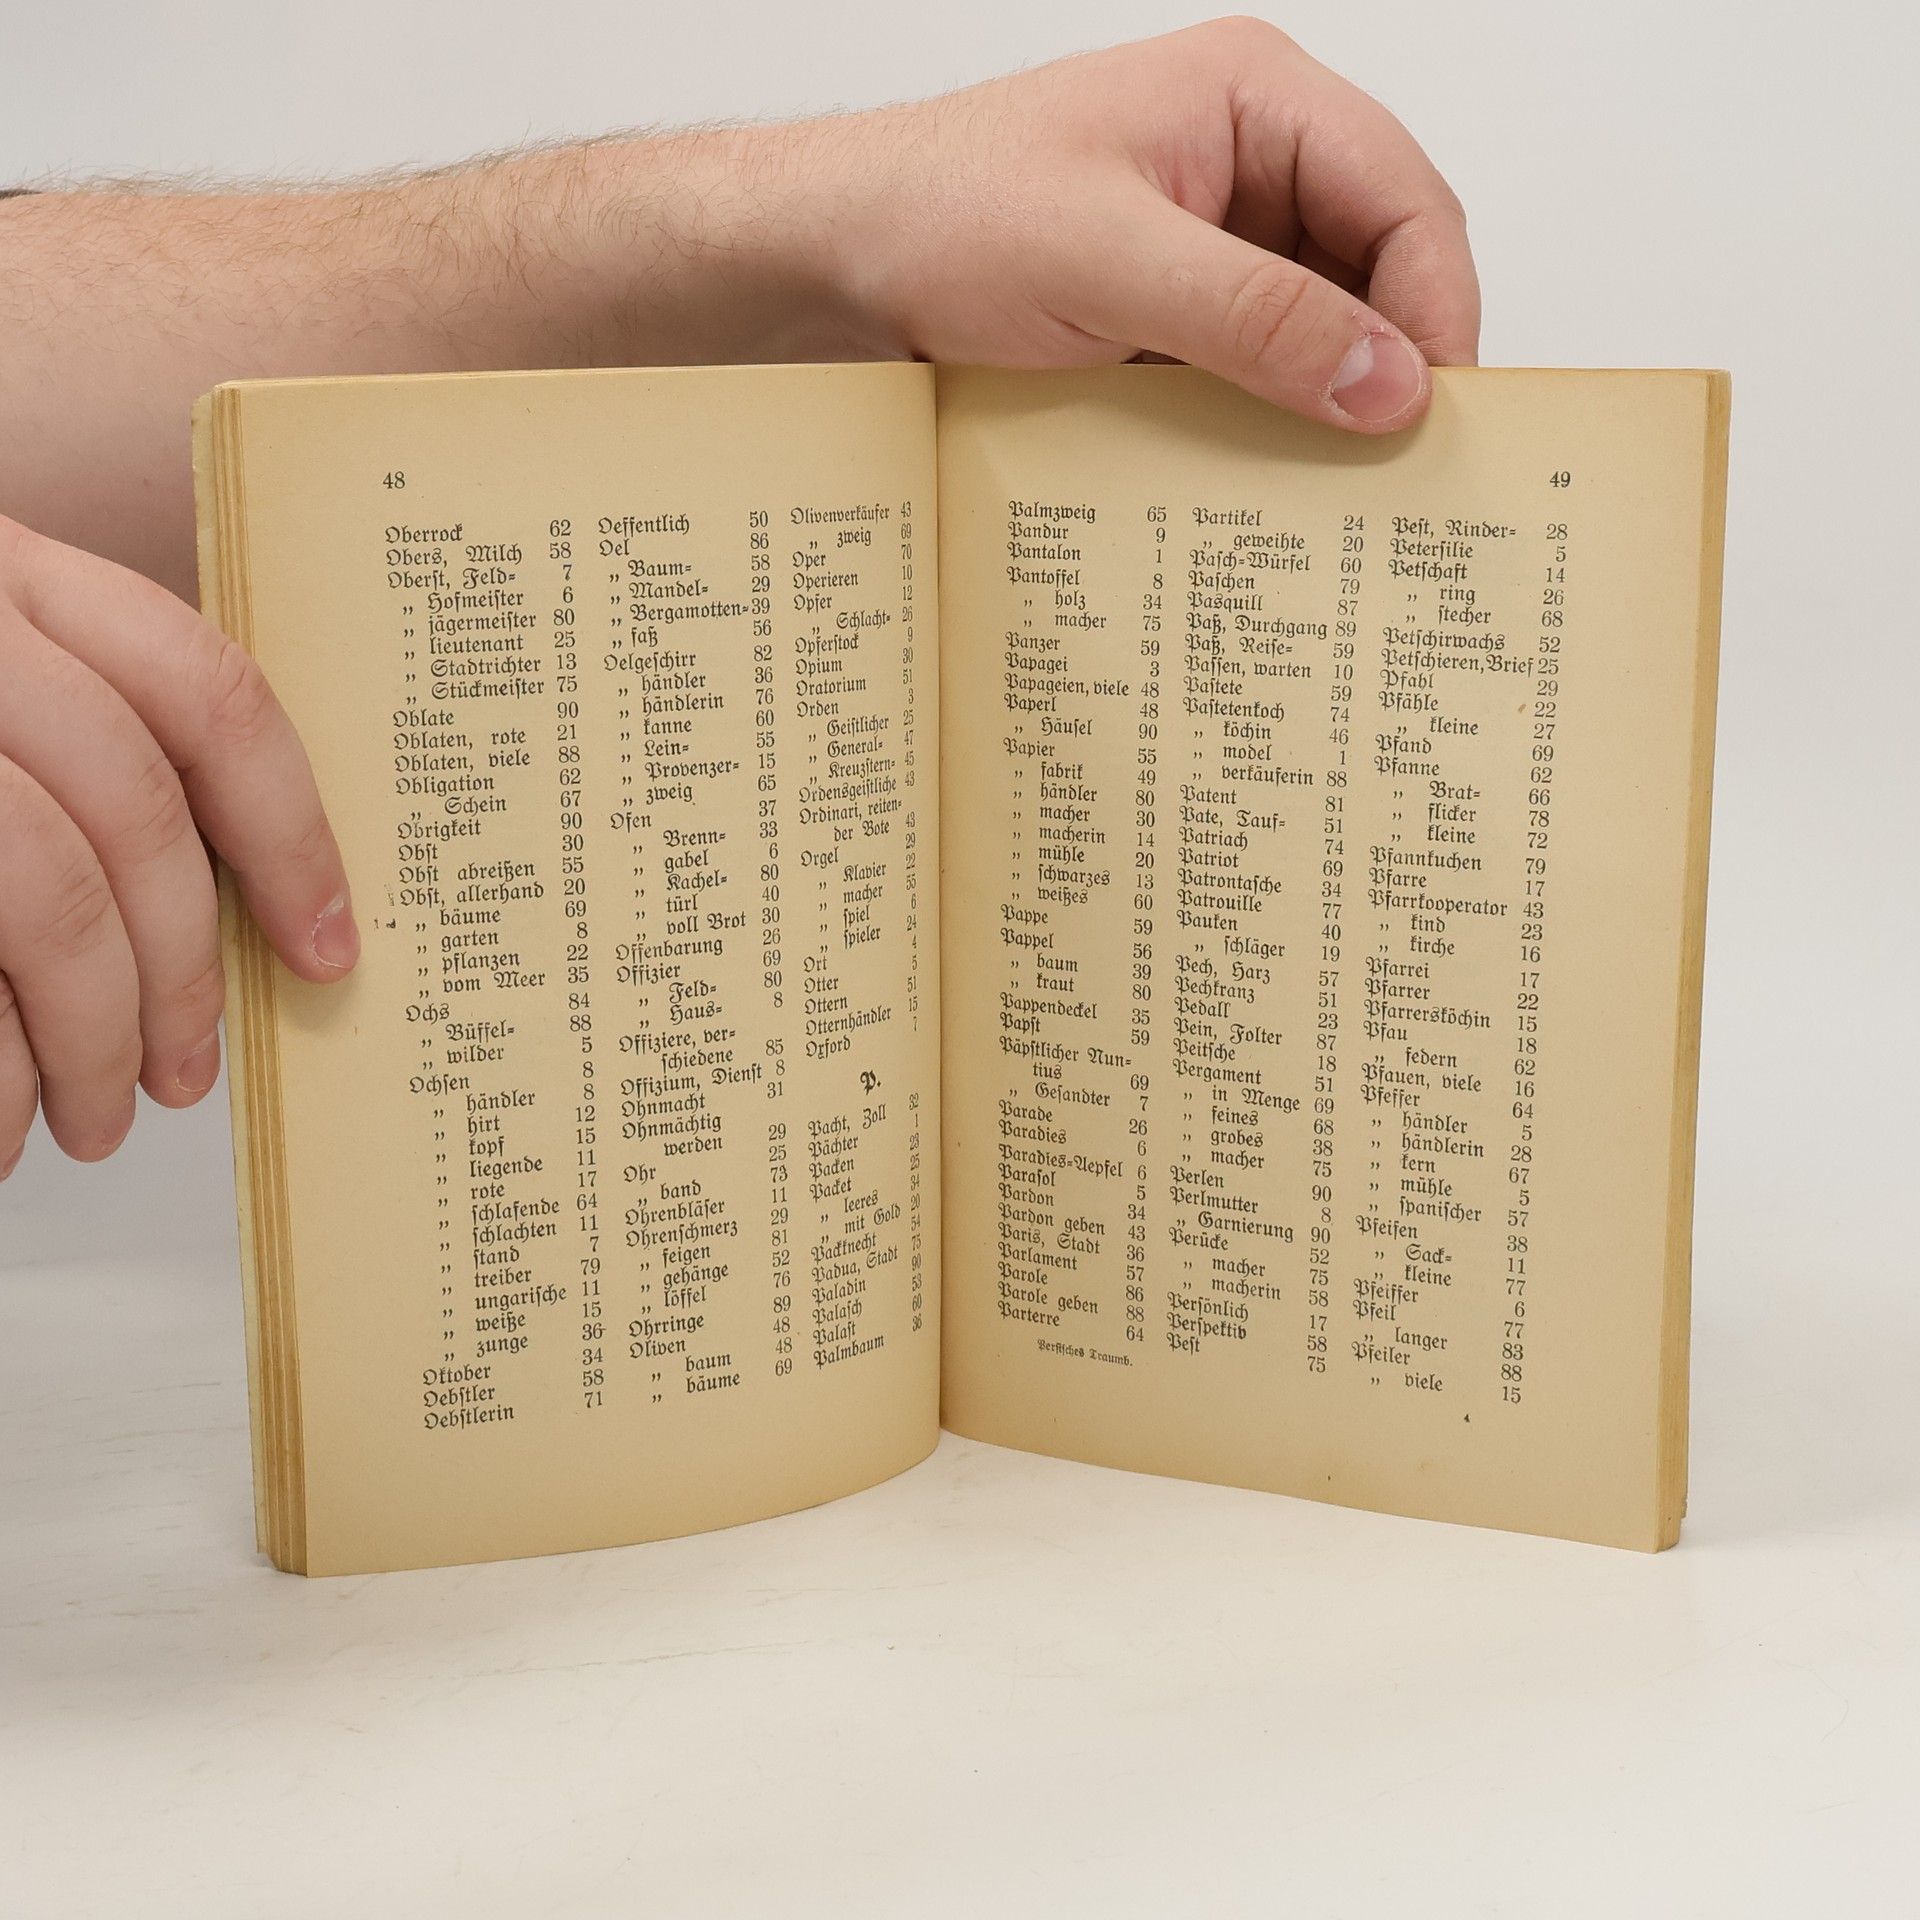 48
Oberrock 62
Obers, Milch 58
Oberst, Feld- 7
„ Hofmeister 6
„ jägermeister 80
„ lieutenant 25
„ Stadtrichter 13
„ Stückmeister 75
Oblate 90
Oblaten, rote 21
Oblaten, viele 88
Obligation 62
„ Schein 67
Obrigkeit 90
Obst 30
Obst abreißen 55
Obst, allerhand 20
„ bäume 69
„ garten 8
„ pflanzen 22
„ vom Meer 35
Ochs 84
„ Büffel- 88
„ wilder 5
Ochsen 8
„ händler 8
„ hirt 12
„ kopf 15
„ liegende 11
„ rote 17
„ schlafende 64
„ schlachten 11
„ stand 7
„ treiber 79
„ ungarische 11
„ weiße 15
„ zunge 36
Oktober 34
Oebstler 58
Oebstlerin 71
Oeffentlich 50
Oel 86
„ Baum- 58
„ Mandel- 29
„ Bergamotten- 39
„ faß 56
Oelgeschirr 82
„ händler 36
„ händlerin 76
„ kanne 60
„ Lein- 55
„ Provenzer- 15
„ zweig 65
Ofen 37
„ Brenn- 33
„ gabel 6
„ Kachel- 80
„ türl 40
„ voll Brot 30
Offenbarung 26
Offizier 69
„ Feld- 80
„ Haus- 8
Offiziere, ver-
schiedene 85
Offizium, Dienst 8
Ohnmacht 31
Ohnmächtig
werden 29
Ohr 25
„ band 73
Ohrenbläser 11
Ohrenschmerz 29
„ feigen 81
„ gehänge 52
„ löffel 76
Ohrringe 89
Oliven 48
„ baum 48
„ bäume 69
Olivenverkäufer 43
„ zweig 69
Oper 70
Operieren 10
Opfer 12
„ Schlacht- 26
Opferstock 9
Opium 30
Oratorium 51
Orden 3
„ Geistlicher 25
„ General- 47
„ Kreuzstern- 45
Ordensgeistliche 43
Ordinari, reiten-
der Bote 43
Orgel 29
„ Klavier 22
„ macher 55
„ spiel 6
„ spieler 24
Ort 4
Otter 5
Ottern 51
Otternhändler 15
Oxford 7
P.
Pacht, Zoll 32
Pächter 1
Packen 23
Packet 25
„ leeres 34
„ mit Gold 20
Packknecht 54
Padua, Stadt 75
Paladin 90
Palasch 53
Palast 60
Palmbaum 36
49
Palmzweig 65
Pandur 9
Pantalon 1
Pantoffel 8
„ holz 34
„ macher 75
Panzer 59
Papagei 3
Papageien, viele 48
Paperl 48
„ Häusel 90
Papier 55
„ fabrik 49
„ händler 80
„ macher 30
„ macherin 14
„ mühle 20
„ schwarzes 13
„ weißes 60
Pappe 59
Pappel 56
„ baum 39
„ kraut 80
Pappendeckel 35
Papst 59
Päpstlicher Nun-
tius 69
„ Gesandter 7
Parade 26
Paradies 6
Paradies-Aepfel 6
Parasol 5
Pardon 34
Pardon geben 43
Paris, Stadt 36
Parlament 57
Parole 86
Parole geben 88
Parterre 64
Persisches Traumb.
Partikel 24
„ geweihte 20
Pasch-Würfel 60
Paschen 79
Pasquill 87
Paß, Durchgang 89
Paß, Reise- 59
Passen, warten 10
Pastete 59
Pastetenkoch 74
„ köchin 46
„ model 1
„ verkäuferin 88
Patent 81
Pate, Tauf- 51
Patriach 74
Patriot 69
Patrontasche 34
Patrouille 77
Pauken 40
„ schläger 19
Pech, Harz 57
Pechkranz 51
Pedall 23
Pein, Folter 87
Peitsche 18
Pergament 51
„ in Menge 69
„ feines 68
„ grobes 38
„ macher 75
Perlen 90
Perlmutter 8
„ Garnierung 90
Perücke 52
„ macher 75
„ macherin 58
Persönlich 17
Perspektiv 58
Pest 75
Pest, Rinder- 28
Petersilie 5
Petschaft 14
„ ring 26
„ stecher 68
Petschirwachs 52
Petschieren, Brief 25
Pfahl 29
Pfähle 22
„ kleine 27
Pfand 69
Pfanne 62
„ Brat- 66
„ flicker 78
„ kleine 72
Pfannkuchen 79
Pfarre 17
Pfarrkooperator 43
„ kind 23
„ kirche 16
Pfarrei 17
Pfarrer 22
Pfarrersköchin 15
Pfau 18
„ federn 62
Pfauen, viele 16
Pfeffer 64
„ händler 5
„ händlerin 28
„ kern 67
„ mühle 5
„ spanischer 57
Pfeifen 38
„ Sack- 11
„ kleine 77
Pfeiffer 6
Pfeil 77
„ langer 83
Pfeiler 88
„ viele 15
4